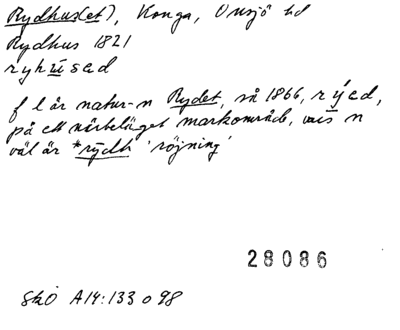 Rydhus(et), Konga, Onsjö hd
Rydhus 1821
ryhúsed
f l är natur-n Rydet, nå 1866, rýed,
på ett närbeläget markområde, vars n
väl är *rydh 'röjning'
28086
Skå A14:133 o 98